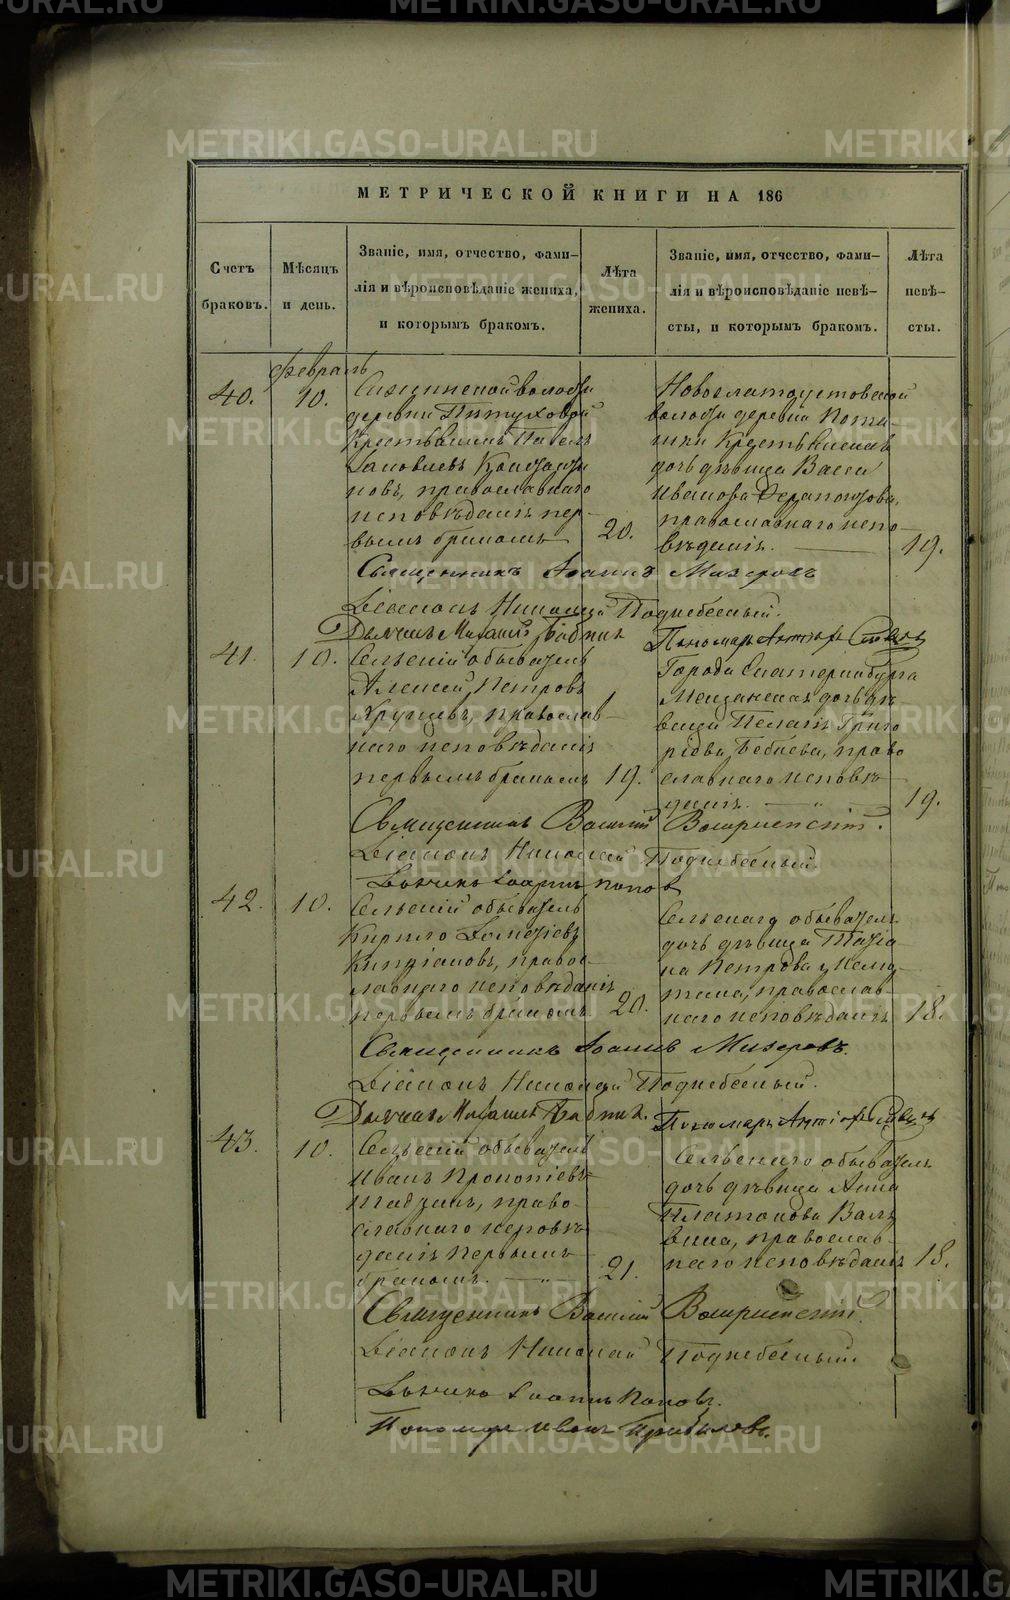 МЕТРИЧЕСКОЙ КНИГИ НА 186
Счетъ браковъ.
Мѣсяцъ и день.
Званіе, имя, отчество, фами-
лія и вѣроисповѣданіе жениха,
и которымъ бракомъ.
Лѣта жениха.
Званіе, имя, отчество, фами-
лія и вѣроисповѣданіе невѣ-
сты, и которымъ бракомъ.
Лѣта невѣ-
сты.
февраль
40.
10.
волости
деревни Пѣтуховой
Крестьянинъ Павелъ
новъ, православнаго
исповѣданія пер-
вымъ бракомъ
20.
Новозлатоустовской
волости деревни Пота-
шки Крестьянская
дочь дѣвица Васса
Иванова
православнаго испо-
вѣданія.
19.
Священникъ Іоаннъ Мизеровъ
Діаконъ Николай Поднебесный.
Дьячекъ Михаилъ Бабинъ
Пономарь
41.
10.
Сельскій обыватель
Алексей Петровъ
православ-
наго исповѣданія
первымъ бракомъ
19.
Города Екатеринбурга
Мещанская дочь дѣ-
вица Пелагія Григо
рьева, право
славнаго исповѣ-
данія.
19.
Священникъ Василій Воскресенскій.
Діаконъ Николай Поднебесный
Дьячекъ Іоаннъ Попов
42.
10.
Сельскій обыватель
Кирило
Кипріановъ, правос-
лавнаго исповѣданія
первымъ бракомъ
20.
Сельскаго обывателя
дочь дѣвица Татіа-
на Петрова
православ-
наго исповѣданія
18.
Священникъ Іоаннъ Мизеровъ.
Діаконъ Николай Поднебесный.
Дьячекъ Михаилъ Бабинъ.
Пономарь
43.
10.
Сельскій обыватель
Иванъ Прокопіевъ
право-
славнаго исповѣ-
данія первымъ
бракомъ.
21.
Сельскаго обывателя
дочь дѣвица Анна
Платонова
православ-
наго исповѣданія
18.
Священникъ Василій Воскресенскій.
Діаконъ Николай Поднебесный.
Дьячекъ Іоаннъ Поповъ.
Пономарь Иванъ Прибыловъ.
METRIKI.GASO-URAL.RU